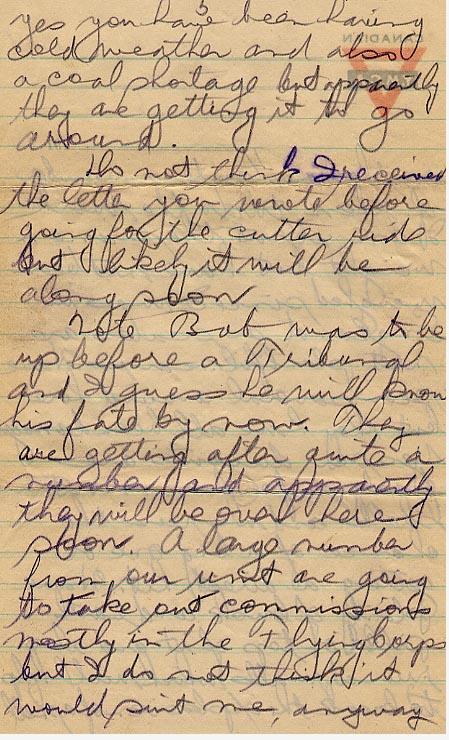 5
yes you have been having
cold weather and also
a coal shortage but apparently
they are getting it to go
around.
Do not think I received
the letter you wrote before
going for the cutter ride
but likely it will be
along soon
Note Bob was to be
up before a Tribunal
and I guess he will know
his fate by now. They
are getting after quite a
number and apparently
they will be over here
soon. A large number
from our unit are going
to take out commissions
mostly in the Flying Corps
but I do not think it
would suit me, anyway
CANADIAN